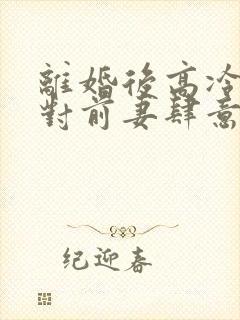 離婚後高冷
對前妻肆意
纪迎春